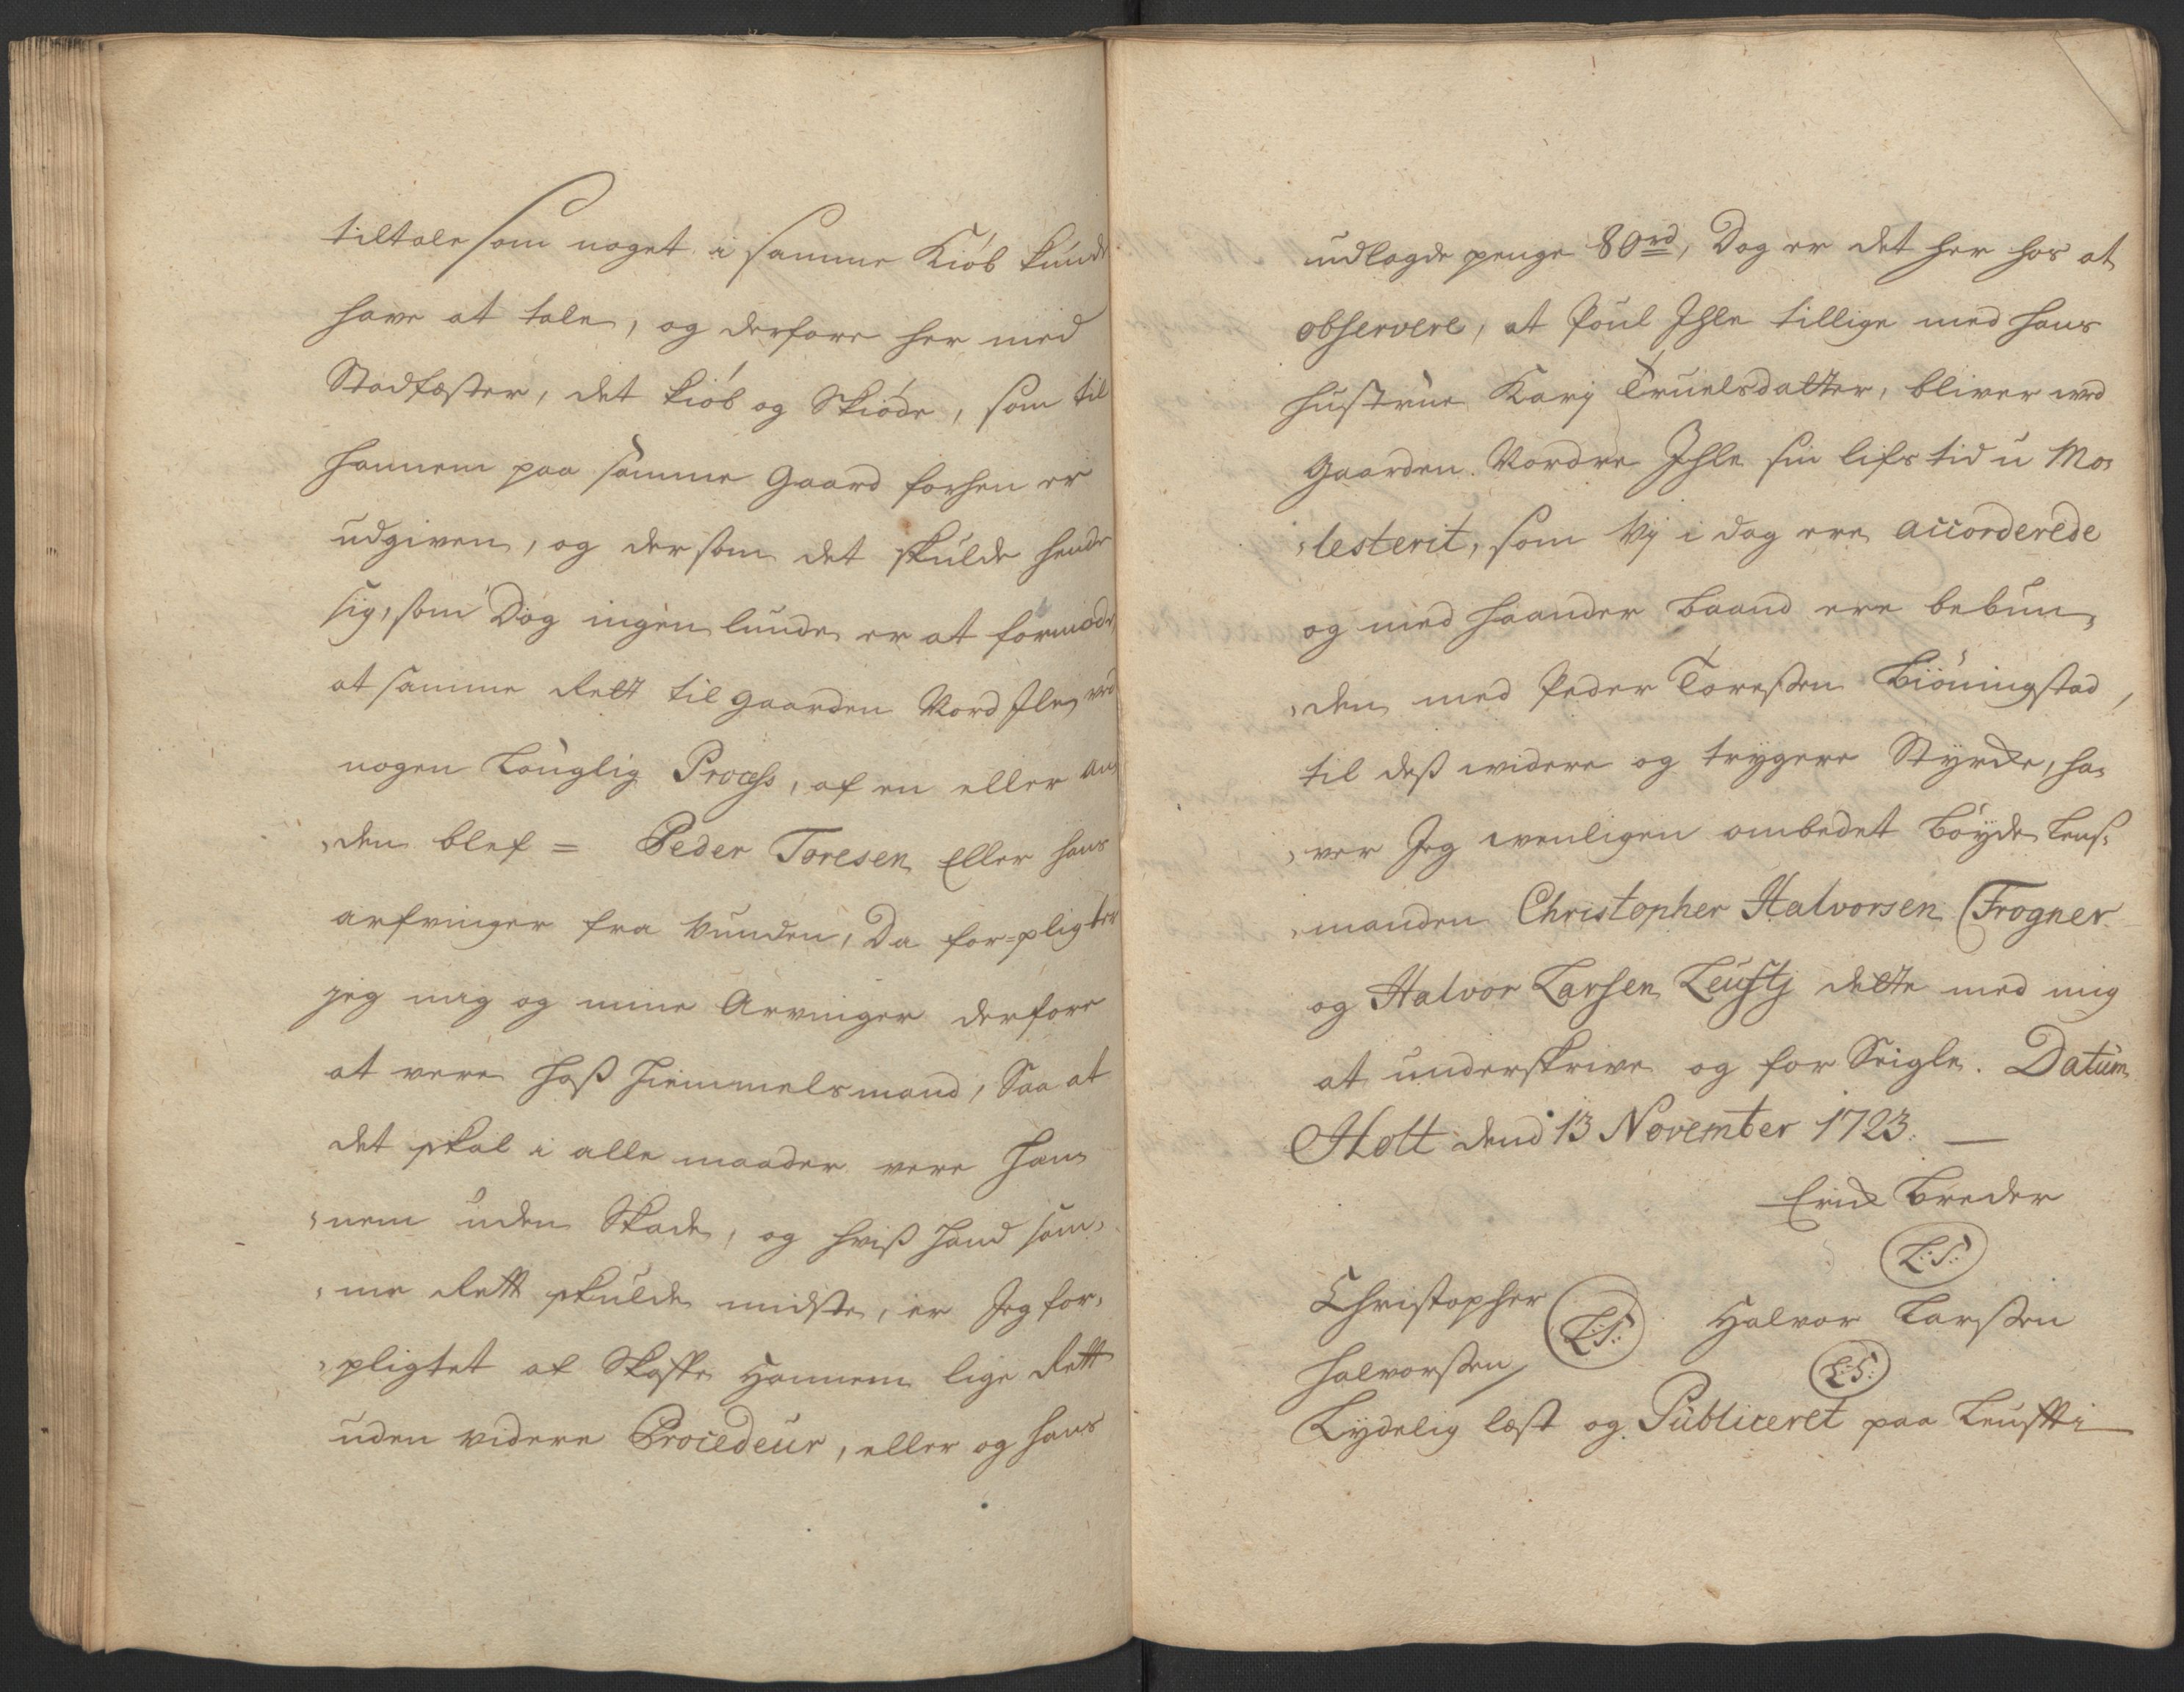 tiltale som noget i samme Kiöb kunde
have at tale, og derfore her med
Stadfæster, det kiöb og Skiöde, som til
hannem paa samme Gaard forhen er
udgiven, og dersom det skulde hende
sig, som Dog ingenlunde er at formode,
at samme Rett til gaarden Nord Ile, ved
nogen Louglig Process, af en eller an¬
¬den blef = Peder Toresen Eller hans
arfvinger fra vunden, Da for=pligter
jeg mig og mine Arvinger derfore
at vere hoß hiemmelsmand, Saa at
det skal i alle maader vere Han¬
¬nem uden Skade, og hviß Hand sam¬
¬me Rett skulde midste, er Jeg for¬
¬pligtet at Skaffe Hannem lige Rett
uden videre Procedeur, eller og hans
udlagde penge 80 rd, Dog er det her hos at
observere, at Poul Ihle tillige med hans
hustrue Karj Truelsdatter, bliver ved
Gaarden Nordre Ihle sin lifs tid u Mo¬
¬lesterit, som Vj i dag ere accorderede
og med Haander Baand ere bebun¬
¬den med Peder Toreßen Biöningstad,
til deß widere og trygere Styrke, ha¬
¬ver Jeg wenligen ombedet Böyde Lens¬
¬manden Christopher Halvorsen Frogner
og Halvor Larsen Leustj dette med mig
at underskrive og for Seigle. Datum
Holt dend 13 November 1723. —
Erick Breder
L:S:
Christopher
L:S: Halvor Larßen
Halvorßen
L:S:
Lydelig læst og Publiceret paa Leusti